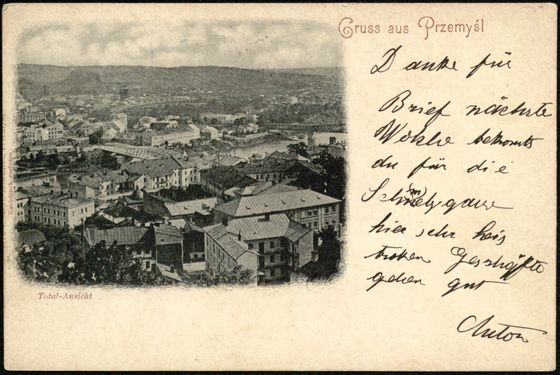 Gruss aus Przemyśl
Danke für
Brief nächste
Woche bekomst
du für die
hier sehr heis
troken Geschäfte
gehen gut
Anton
Total-Ansicht